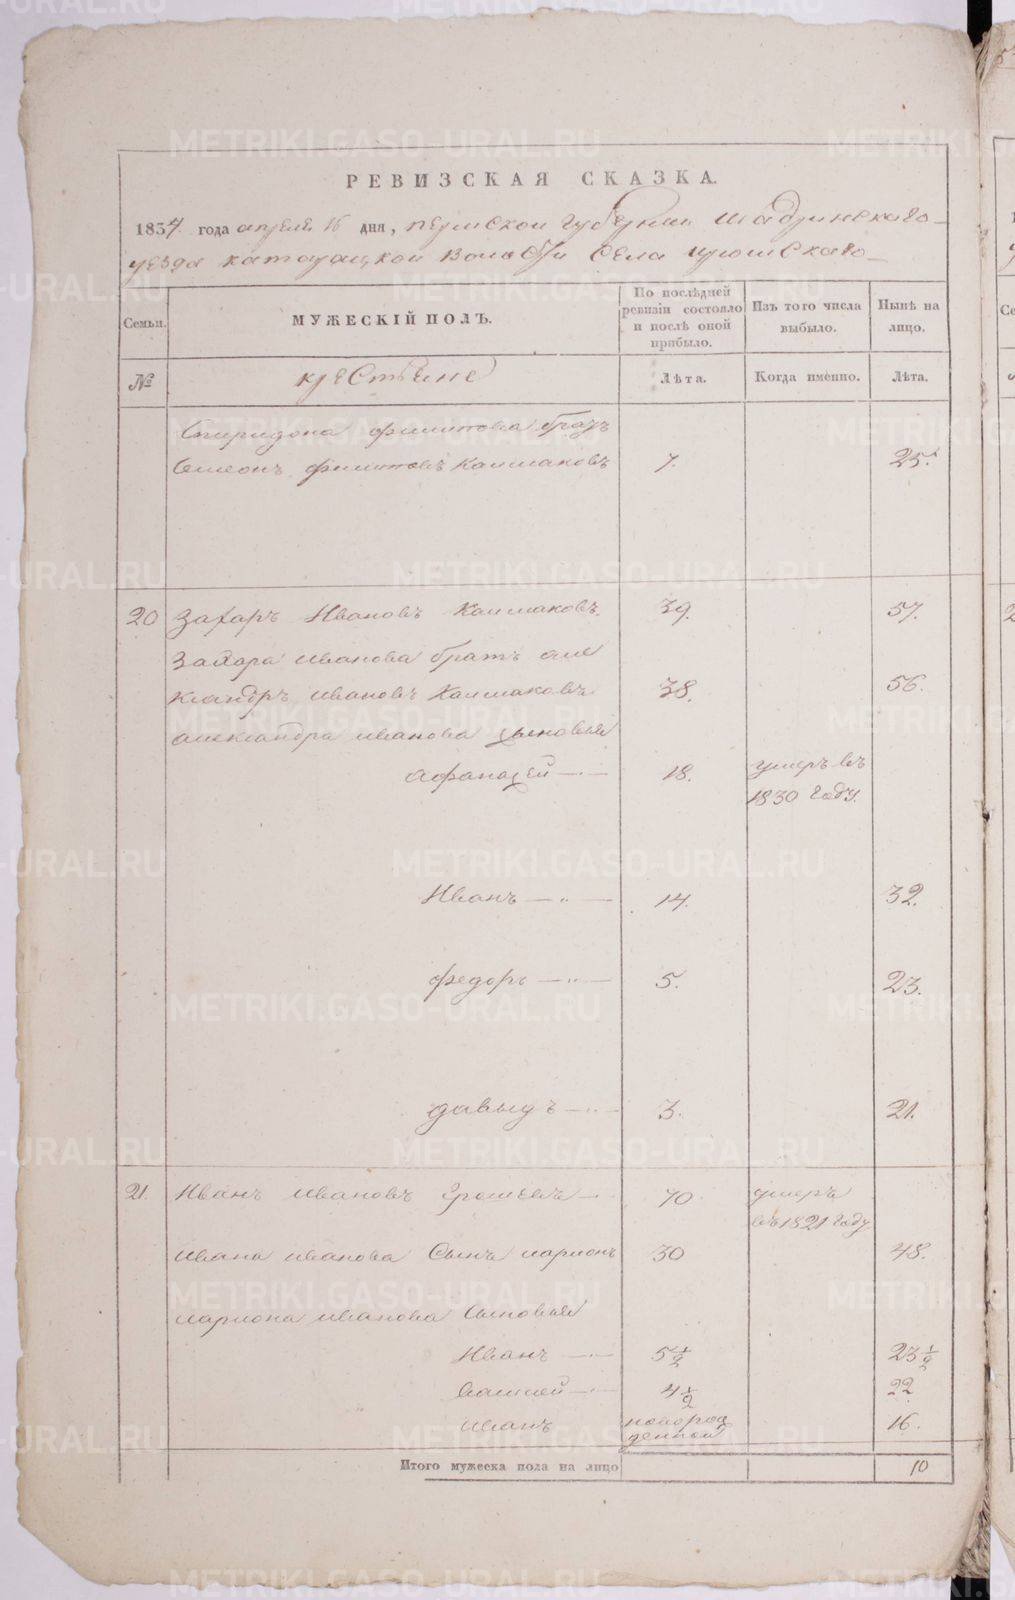 РЕВИЗСКАЯ СКАЗКА.
1834 года апреля 16 дня, пермской губернии шадринскаго
уезда катайцкой волости села
Семьи.
МУЖЕСКІЙ ПОЛЪ.
По послѣдней ревизіи состояло и послѣ оной прибыло.
Изъ того числа выбыло.
Нынѣ на лицо.
№
крестьяне
Лѣта.
Когда именно.
Лѣта.
Спиридона филитова братъ
Симеонъ филитовъ Калмаковъ 7. 25.
20 Захаръ Ивановъ Калмаковъ. 39. 57.
Захара иванова братъ але
ксандръ ивановъ Калмаковъ 38. 56.
александра иванова сыновья
Афанасей 18. умеръ въ
1830 году.
Иванъ 14. 32.
федоръ 5. 23.
давыдъ 3. 21.
21. Иванъ ивановъ 70 умеръ
въ 1821 году
ивана иванова сынъ ларионъ 30 48.
лариона иванова сыновья
Иванъ 5 1/2 23 1/2
4 1/2 22
иванъ новорож
денной 16.
Итого мужеска пола на лицо 10
METRIKI.GASO-URAL.RU